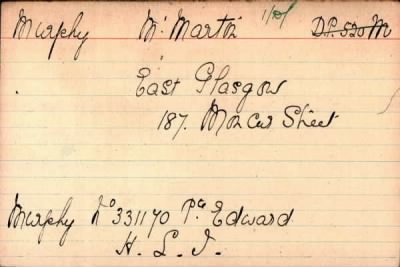 Murphy Mr Martin D.P. 520 M
East Glasgow
187. Moncur Street
Murphy No 331170 Pte Edward
H. L. I.